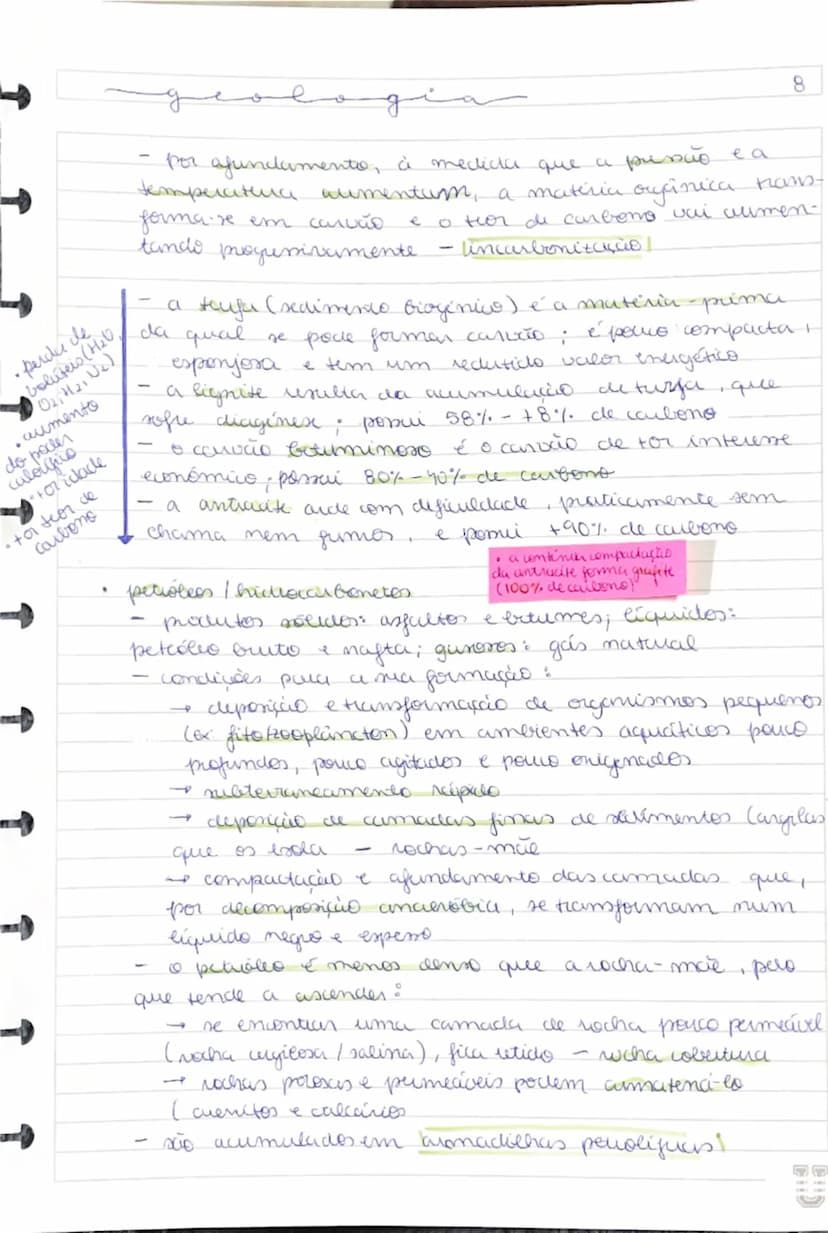 geologia
8
- por afundamento, à medida que a pressão e a
temperatura aumentam, a matéria orgânica trans-
forma-se em carvão e o teor de carbono vai aumen-
tando progressivamente - incarbonização
- a turfa (sedimento biogénico) é a matéria-prima
da qual se pode formar carvão; é pouco compacta,
esponjosa e tem um reduzido valor energético
- a lignite resulta da acumulação de turfa, que
sofre diagénese; possui 58% - 78% de carbono
- o carvão betuminoso é o carvão de >or interesse
económico; possui 80% - 90% de carbono
- a antracite arde com dificuldade, praticamente sem
chama nem fumos, e possui +90% de carbono
• perda de
voláteis (H2O,
O2, H2, N2)
• aumento
do poder
calorífico
• +or idade
• +or teor de
carbono
• a contínua compactação
da antracite forma grafite
(100% de carbono)
• petróleos / hidrocarbonetos
- produtos sólidos: asfaltos e betumes; líquidos:
petróleo bruto e nafta; gasosos: gás natural
- condições para a sua formação:
→ deposição e transformação de organismos pequenos
(ex: fito/zooplâncton) em ambientes aquáticos pouco
profundos, pouco agitados e pouco oxigenados
→ subterraneamento rápido
→ deposição de camadas finas de sedimentos (argilas
que os isola - rochas-mãe
→ compactação e afundamento das camadas que,
por decomposição anaeróbia, se transformam num
líquido negro e espesso
- o petróleo é menos denso que a rocha-mãe, pelo
que tende a ascender:
→ se encontrar uma camada de rocha pouco permeável
(rocha argilosa / salina), fica retido - rocha cobertura
→ rochas porosas e permeáveis podem armazená-lo
(arenitos e calcários
- são acumulados em armadilhas petrolíferas